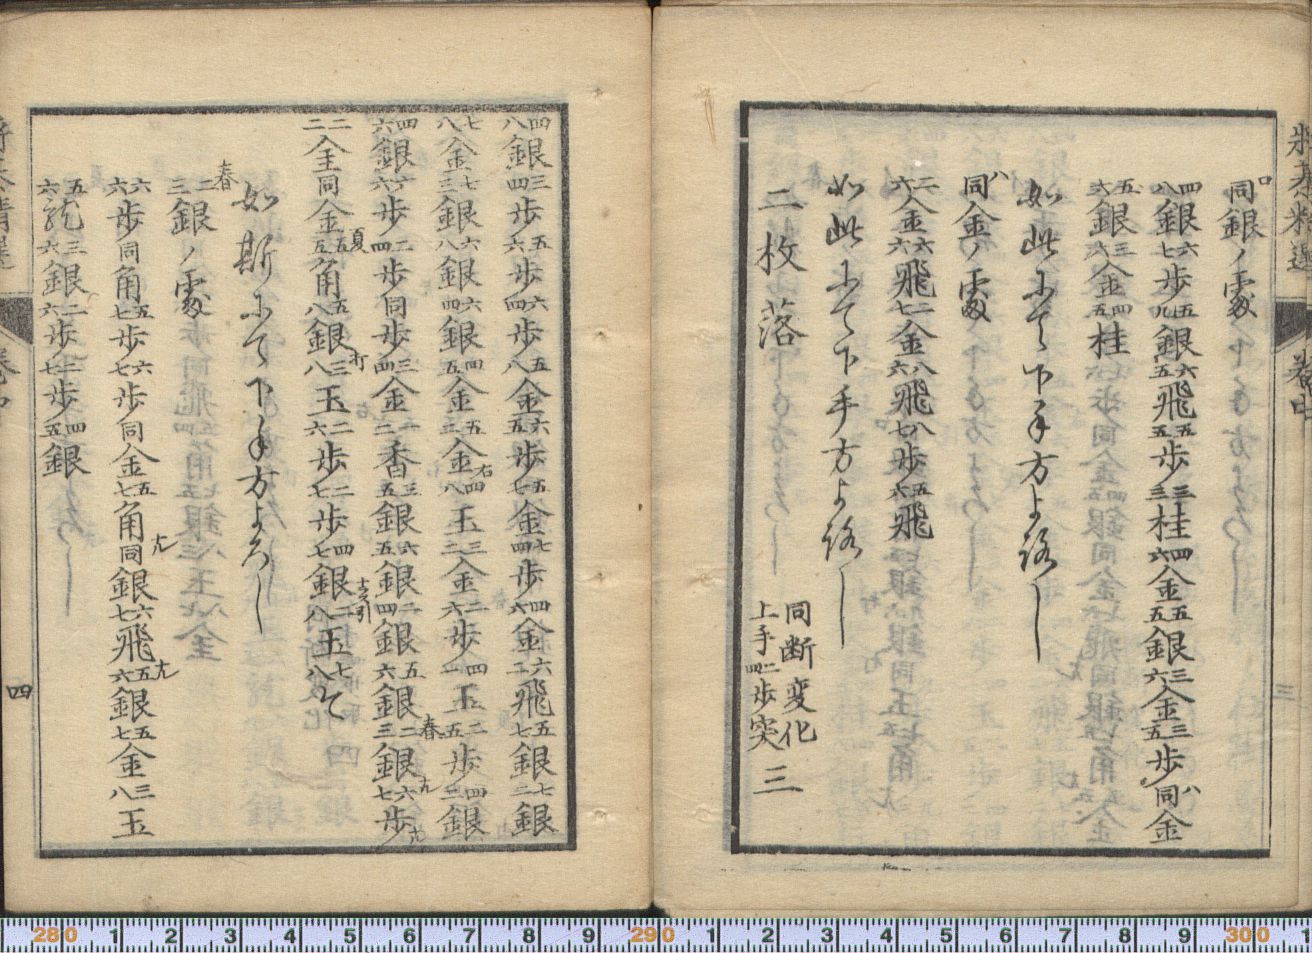 将棊精選 巻中
ロ
同銀ノ處
四八銀六七歩五九銀六五飛五五歩三三桂四六金五五銀三六金三五歩同金ハ
五六銀三六金四五桂
如此にて下手方よ路し
ハ
同金ノ處
二六金六六飛一七金八六飛八七歩五六飛
如此にて下手方よ路し
二枚落
同断変化
上手二四歩突
三
四八銀三四歩五六歩六四歩五八金六五歩五七金七四歩四六金六二飛五七銀七二銀
七八金七三銀六八銀六四銀四五金五三金右四八玉三二金二六歩四一玉二五歩四二銀
四六銀六六歩二四歩同歩三四金一二香三五銀六五銀二四銀五六銀春二三銀六七歩
二二金同金夏五五角五八銀打三八玉二六歩二七歩四七銀二八玉七八と
如斯にて下手方よろし
春
二三銀ノ處
六六歩同角五七歩六七歩同金五七角同銀六七飛五六銀五七金三八玉
五六龍三六銀二六歩二七歩四五銀
四